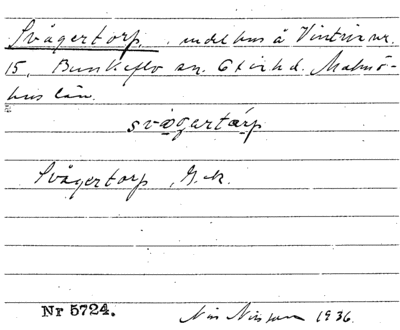 Svågertorp, undel hus å Vintrie nr.
15, Bunkeflo sn. Oxie hd. Malmö-
hus län.
svågartårp
Svågertorp, G.k.
Nr 5724.
Nils Nilsson 1936.